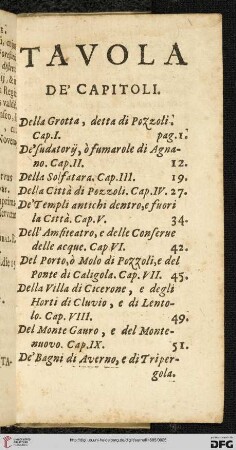 TAVOLA
DE' CAPITOLI.
Della Grotta, detta di Pozzoli.
Cap.I. pag.1.
De' sudatorij, ò fumarole di Agna-
no. Cap.II. 12.
Della Solfatara. Cap.III. 19.
Della Città di Pozzoli. Cap.IV. 27.
De' Templi antichi dentro, e fuori
la Città. Cap.V. 34.
Dell'Amfiteatro, e delle Conserue
delle acque. Cap VI. 42.
Del Porto, ò Molo di Pozzoli, e del
Ponte di Caligola. Cap. VII. 45.
Della Villa di Cicerone, e degli
Horti di Cluvio, e di Lento-
lo. Cap. VIII. 49.
Del Monte Gauro, e del Monte-
nuovo. Cap.IX. 51.
De' Bagni di Averno, e di Triper-
gola.
TA-
DFG